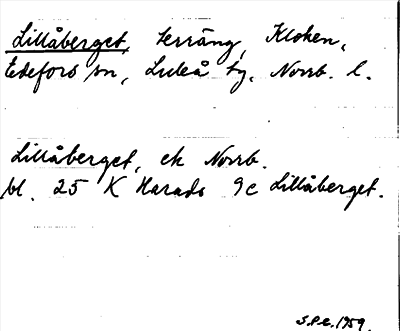 Lillåberget, terräng, Klöken,
Edefors sn, Luleå tg, Norrb. l.
Lillåberget, ek Norrb.
bl. 25 K Harads 9c Lillåberget.
S.P.e. 1959.